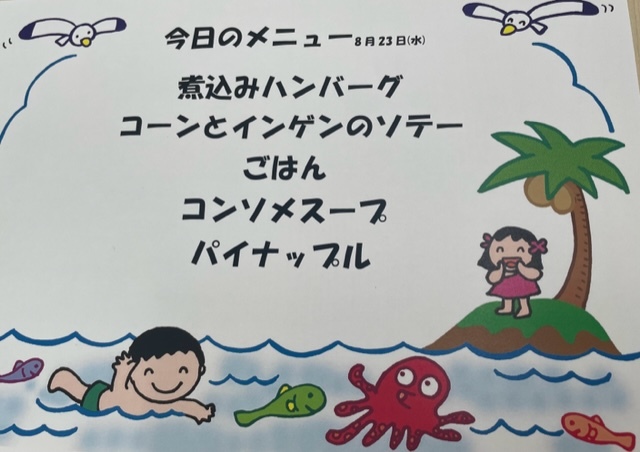 今日のメニュー8月23日(水)
煮込みハンバーグ
コーンとインゲンのソテー
ごはん
コンソメスープ
パイナップル